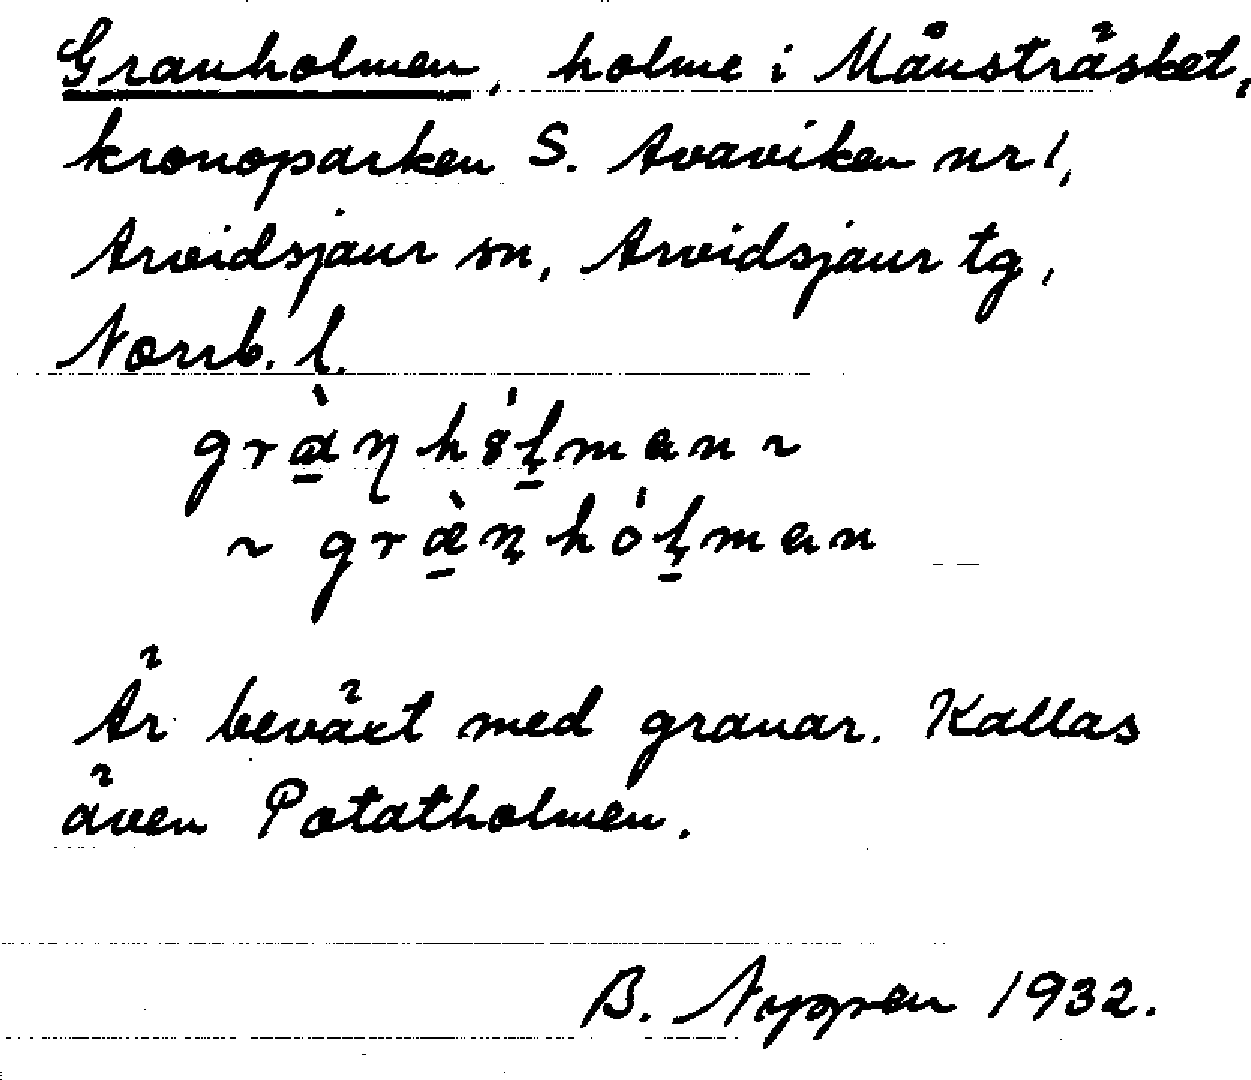 Granholmen, holme i Månsträsket,
kronoparken S. Avaviken nr 1,
Arvidsjaur sn, Arvidsjaur tg,
Norrb. l.
Är beväxt med granar. Kallas
även Potatholmen.
B. Nygren 1932.